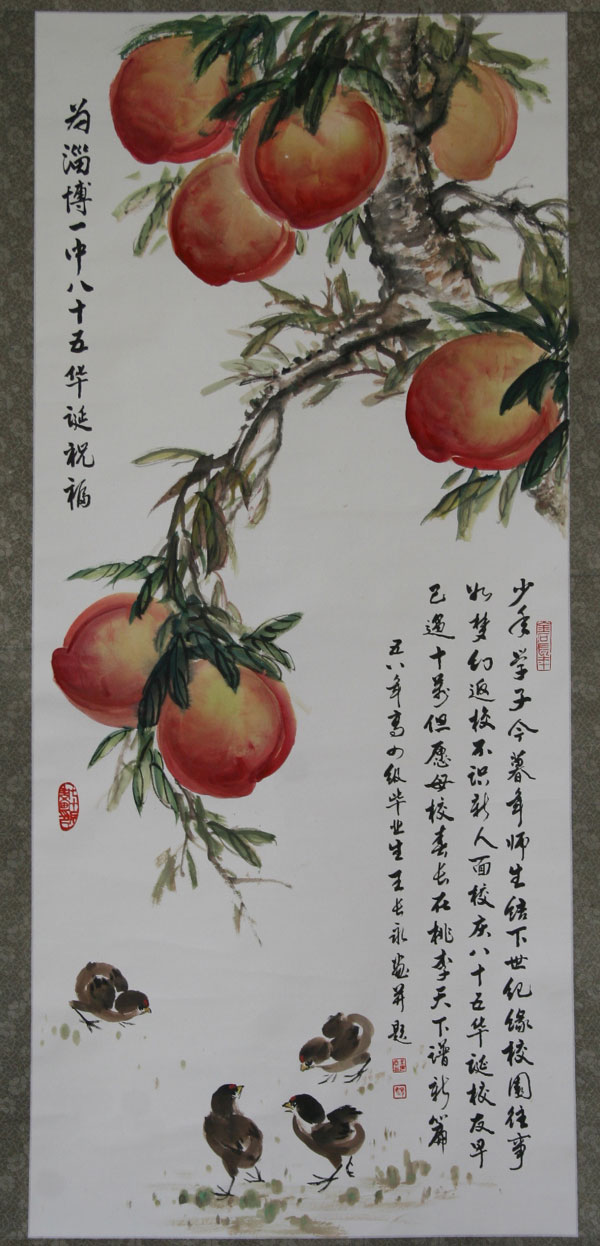 为淄博一中八十五华诞祝福
少年学子今暮年师生结下世纪缘校园往事
如梦幻返校不识新人面校庆八十五华诞校友早
已過十萬但愿母校春长在桃李天下谱新篇
五八年高四级毕业生王长永画并题